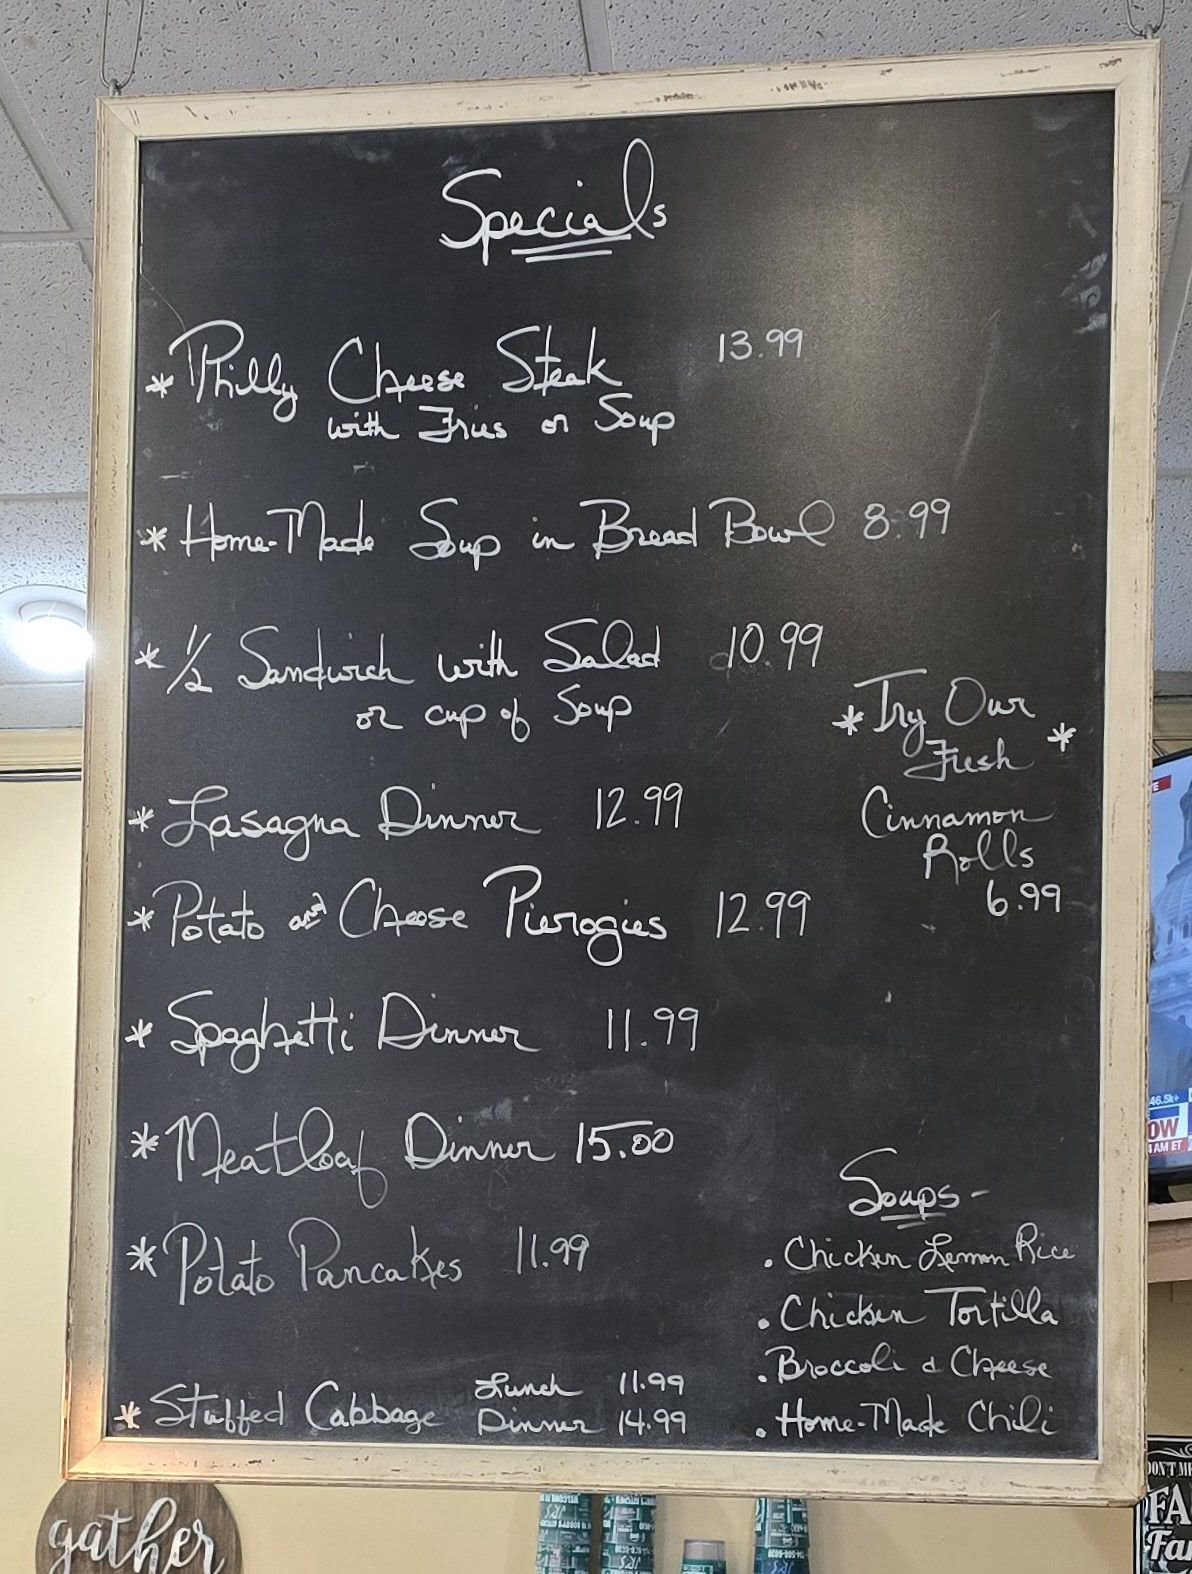 Specials
* Philly Cheese Steak 13.99
with Fries or Soup
* Home-Made Soup in Bread Bowl 8.99
* 1/2 Sandwich with Salad 10.99
or cup of Soup
* Try Our *
Fresh
Cinnamon
Rolls
6.99
* Lasagna Dinner 12.99
* Potato and Cheese Pierogies 12.99
* Spaghetti Dinner 11.99
* Meatloaf Dinner 15.00
* Potato Pancakes 11.99
* Stuffed Cabbage Lunch 11.99
Dinner 14.99
Soups-
• Chicken Lemon Rice
• Chicken Tortilla
• Broccoli & Cheese
• Home-Made Chili
gather
46.5k+
OW
AM ET
DON'T ME
FA
Fa